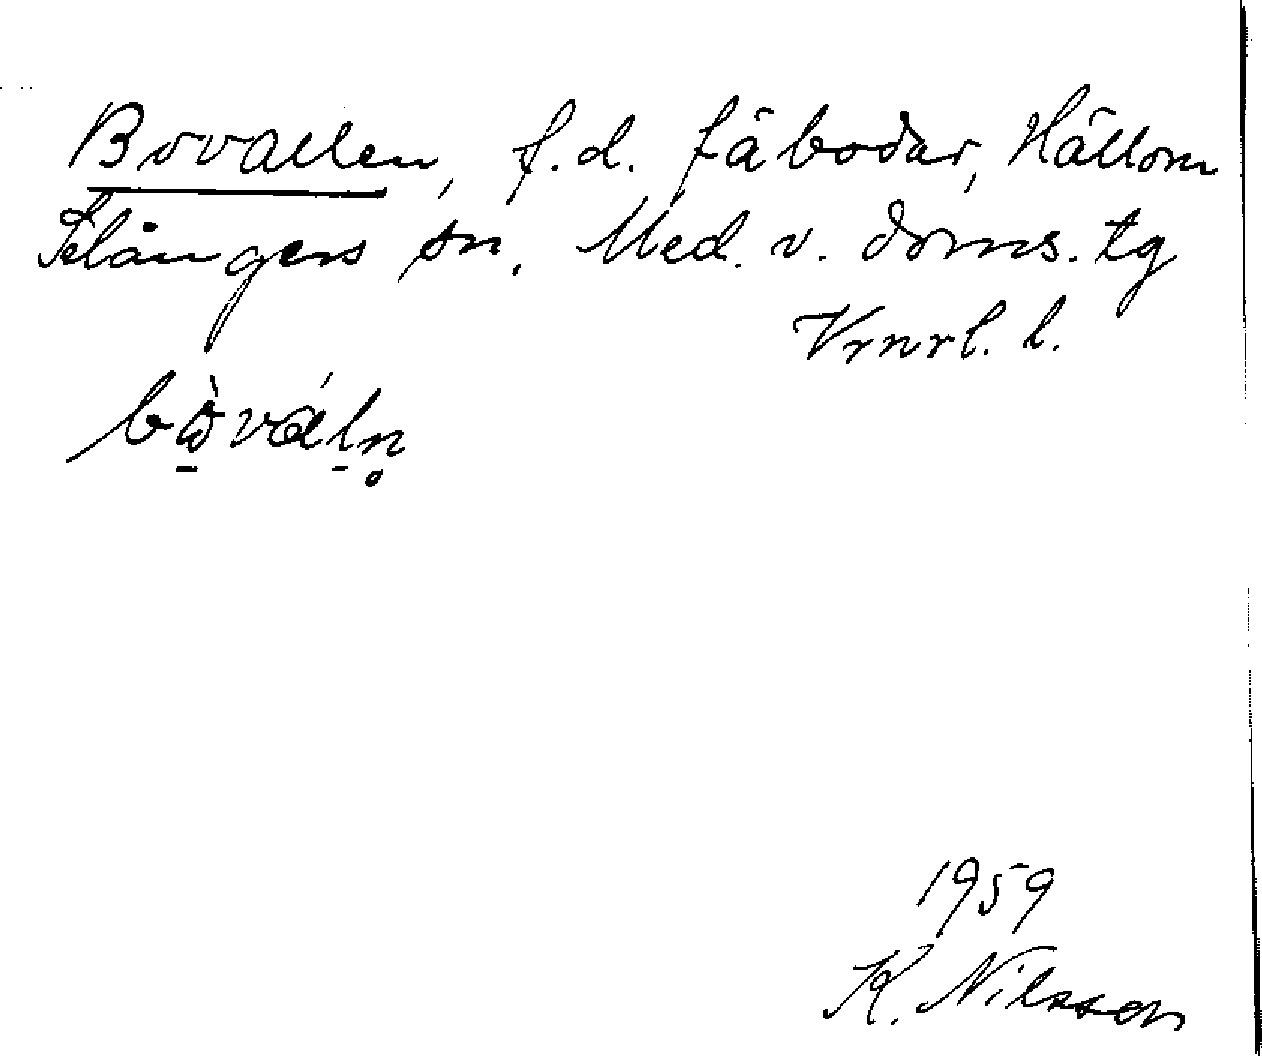 Bovallen, f.d. fäbodar, Hällom
Selångers sn. Med. v. doms. tg
Vrnrl. l.
bòváln̥
1959
K. Nilsson